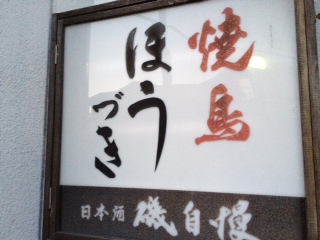 焼鳥
ほう
づき
日本酒 磯自慢